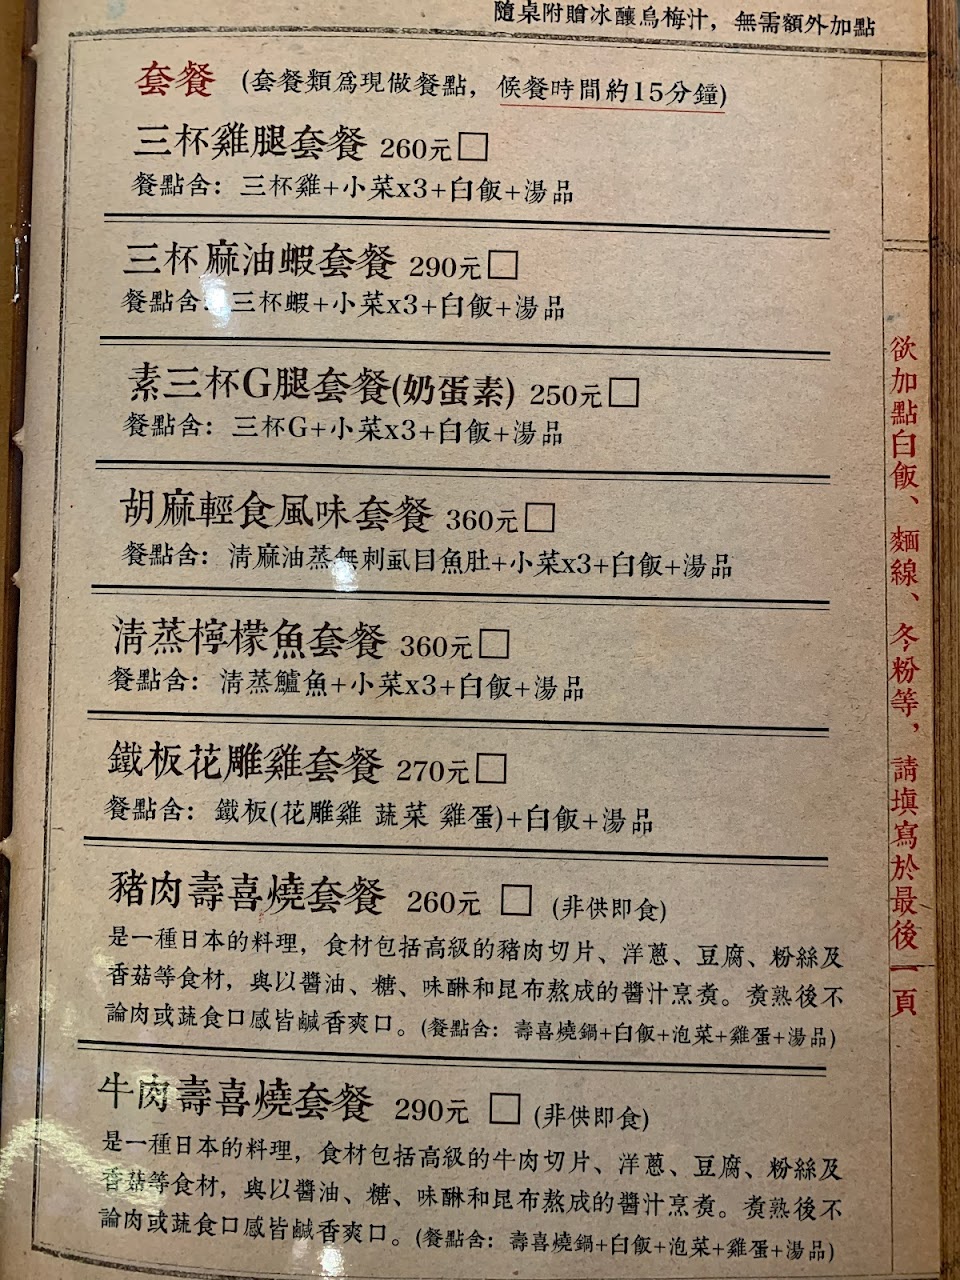 隨桌附贈冰釀烏梅汁，無需額外加點
套餐 (套餐類爲現做餐點，候餐時間約15分鐘)
三杯雞腿套餐 260元□
餐點含：三杯雞+小菜x3+白飯+湯品
三杯麻油蝦套餐 290元□
餐點含：三杯蝦+小菜x3+白飯+湯品
素三杯G腿套餐(奶蛋素) 250元□
餐點含：三杯G+小菜x3+白飯+湯品
胡麻輕食風味套餐 360元□
餐點含：清麻油蒸無刺虱目魚肚+小菜x3+白飯+湯品
清蒸檸檬魚套餐 360元□
餐點含：清蒸鱸魚+小菜x3+白飯+湯品
鐵板花雕雞套餐 270元□
餐點含：鐵板(花雕雞 蔬菜 雞蛋)+白飯+湯品
豬肉壽喜燒套餐 260元 □ (非供即食)
是一種日本的料理，食材包括高級的豬肉切片、洋蔥、豆腐、粉絲及
香菇等食材，與以醬油、糖、味醂和昆布熬成的醬汁烹煮。煮熟後不
論肉或蔬食口感皆鹹香爽口。(餐點含：壽喜燒鍋+白飯+泡菜+雞蛋+湯品)
牛肉壽喜燒套餐 290元 □ (非供即食)
是一種日本的料理，食材包括高級的牛肉切片、洋蔥、豆腐、粉絲及
香菇等食材，與以醬油、糖、味醂和昆布熬成的醬汁烹煮。煮熟後不
論肉或蔬食口感皆鹹香爽口。(餐點含：壽喜燒鍋+白飯+泡菜+雞蛋+湯品)
欲加點白飯、麵線、冬粉等，請填寫於最後一頁